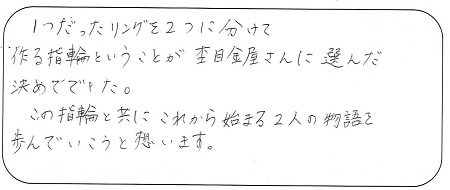 1つだったリングを2つに分けて
作る指輪ということが杢目金屋さんに選んだ
決めてでした。
この指輪と共にこれから始まる2人の物語を
歩んでいこうと想います。